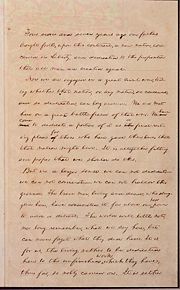 Four score and seven years ago our fathers
brought forth, upon this continent, a new nation, con-
ceived in Liberty, and dedicated to the proposition
that all men are created equal.
Now we are engaged in a great civil war, test-
ing whether that nation, or any nation, so conceived,
and so dedicated, can long endure. We are met
here on a great battle-field of that war. We have
come to dedicate a portion of it as the final rest-
ing place of those who here gave their lives that
that nation might live. It is altogether fitting
and proper that we should do this.
But in a larger sense we can not dedicate
we can not consecrate we can not hallow this
ground. The brave men, living and dead, who strug-
gled here, have consecrated it far above our poor power
to add or detract. The world will little note,
nor long remember, what we say here, but
can never forget what they did here. It is
for us, the living, rather to be dedicated
here to the unfinished work which they have,
thus far, so nobly carried on. It is rather